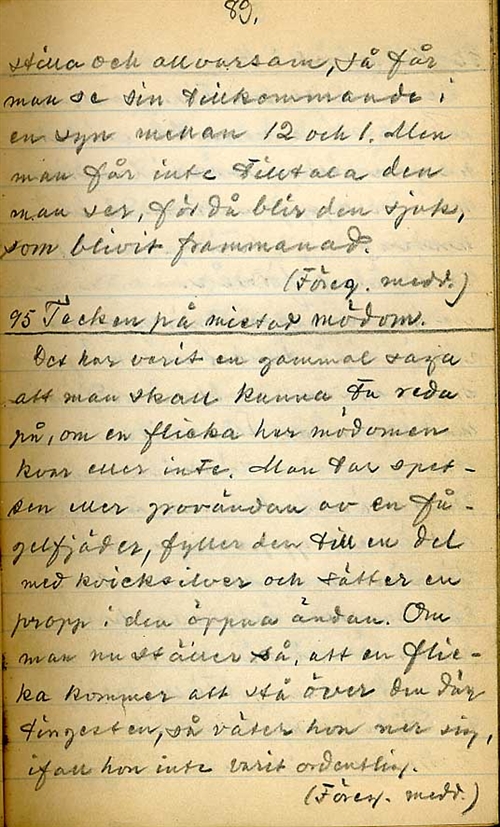 89.
stilla och allvarsam, så får
man se sin tillkommande i
en syn mellan 12 och 1. Men
man får inte tilltala den
man ser, för då blir den sjuk,
som blivit frammanad.
(Föreg. medd.)
95 Tecken på mistad mödom.
Det har varit en gammal saga
att man skall kunna ta reda
på, om en flicka har mödomen
kvar eller inte. Man tar spet-
sen eller grovändan av en få-
gelfjäder, fyller den till en del
med kvicksilver och sätter en
propp i den öppna ändan. Om
man nu ställer så, att en flic-
ka kommer att stå över den där
tingesten, så väter hon ner sig,
ifall hon inte varit ordentlig.
(Föreg. medd.)